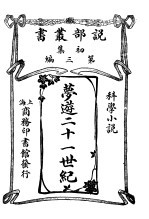 説部叢書
初集
第三編
科學小説
夢遊二十一世紀
上海
商務印書館發行